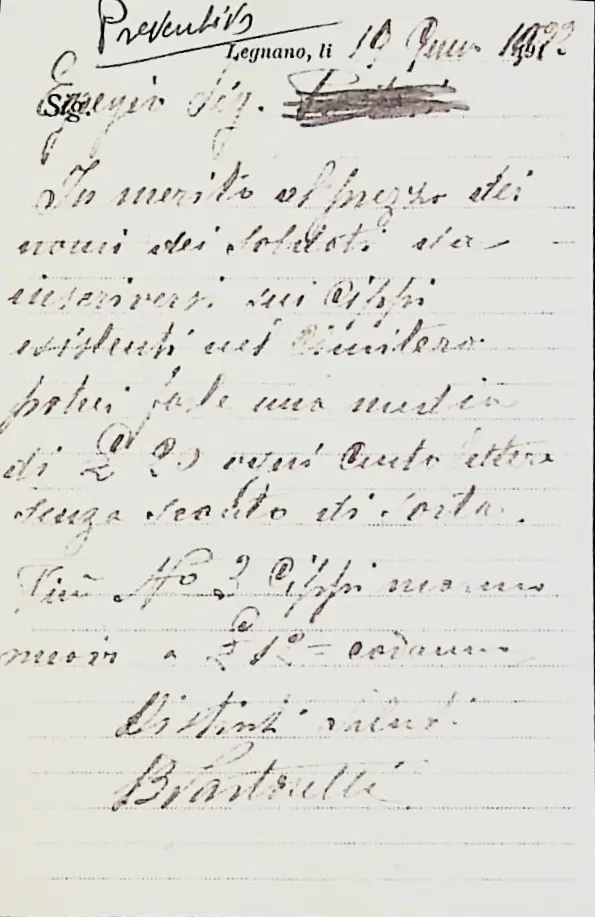 Preventivo
Legnano, li 19 1922
Sig. Egregio Sig.
In merito al prezzo dei
nomi dei soldati da
inscriversi sui Cippi
esistenti nel Cimitero
potrei fare una media
di £ 20 ogni Cento lettere
senza sconto di sorta.
Più No 3 Cippi
nuovi a £ 12 = cadauno
Distinti saluti